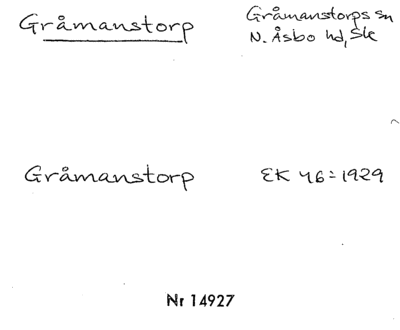 Gråmanstorp
Gråmanstorps sn
N. Åsbo hd, Sk
Gråmanstorp
EK 46 = 1929
Nr 14927